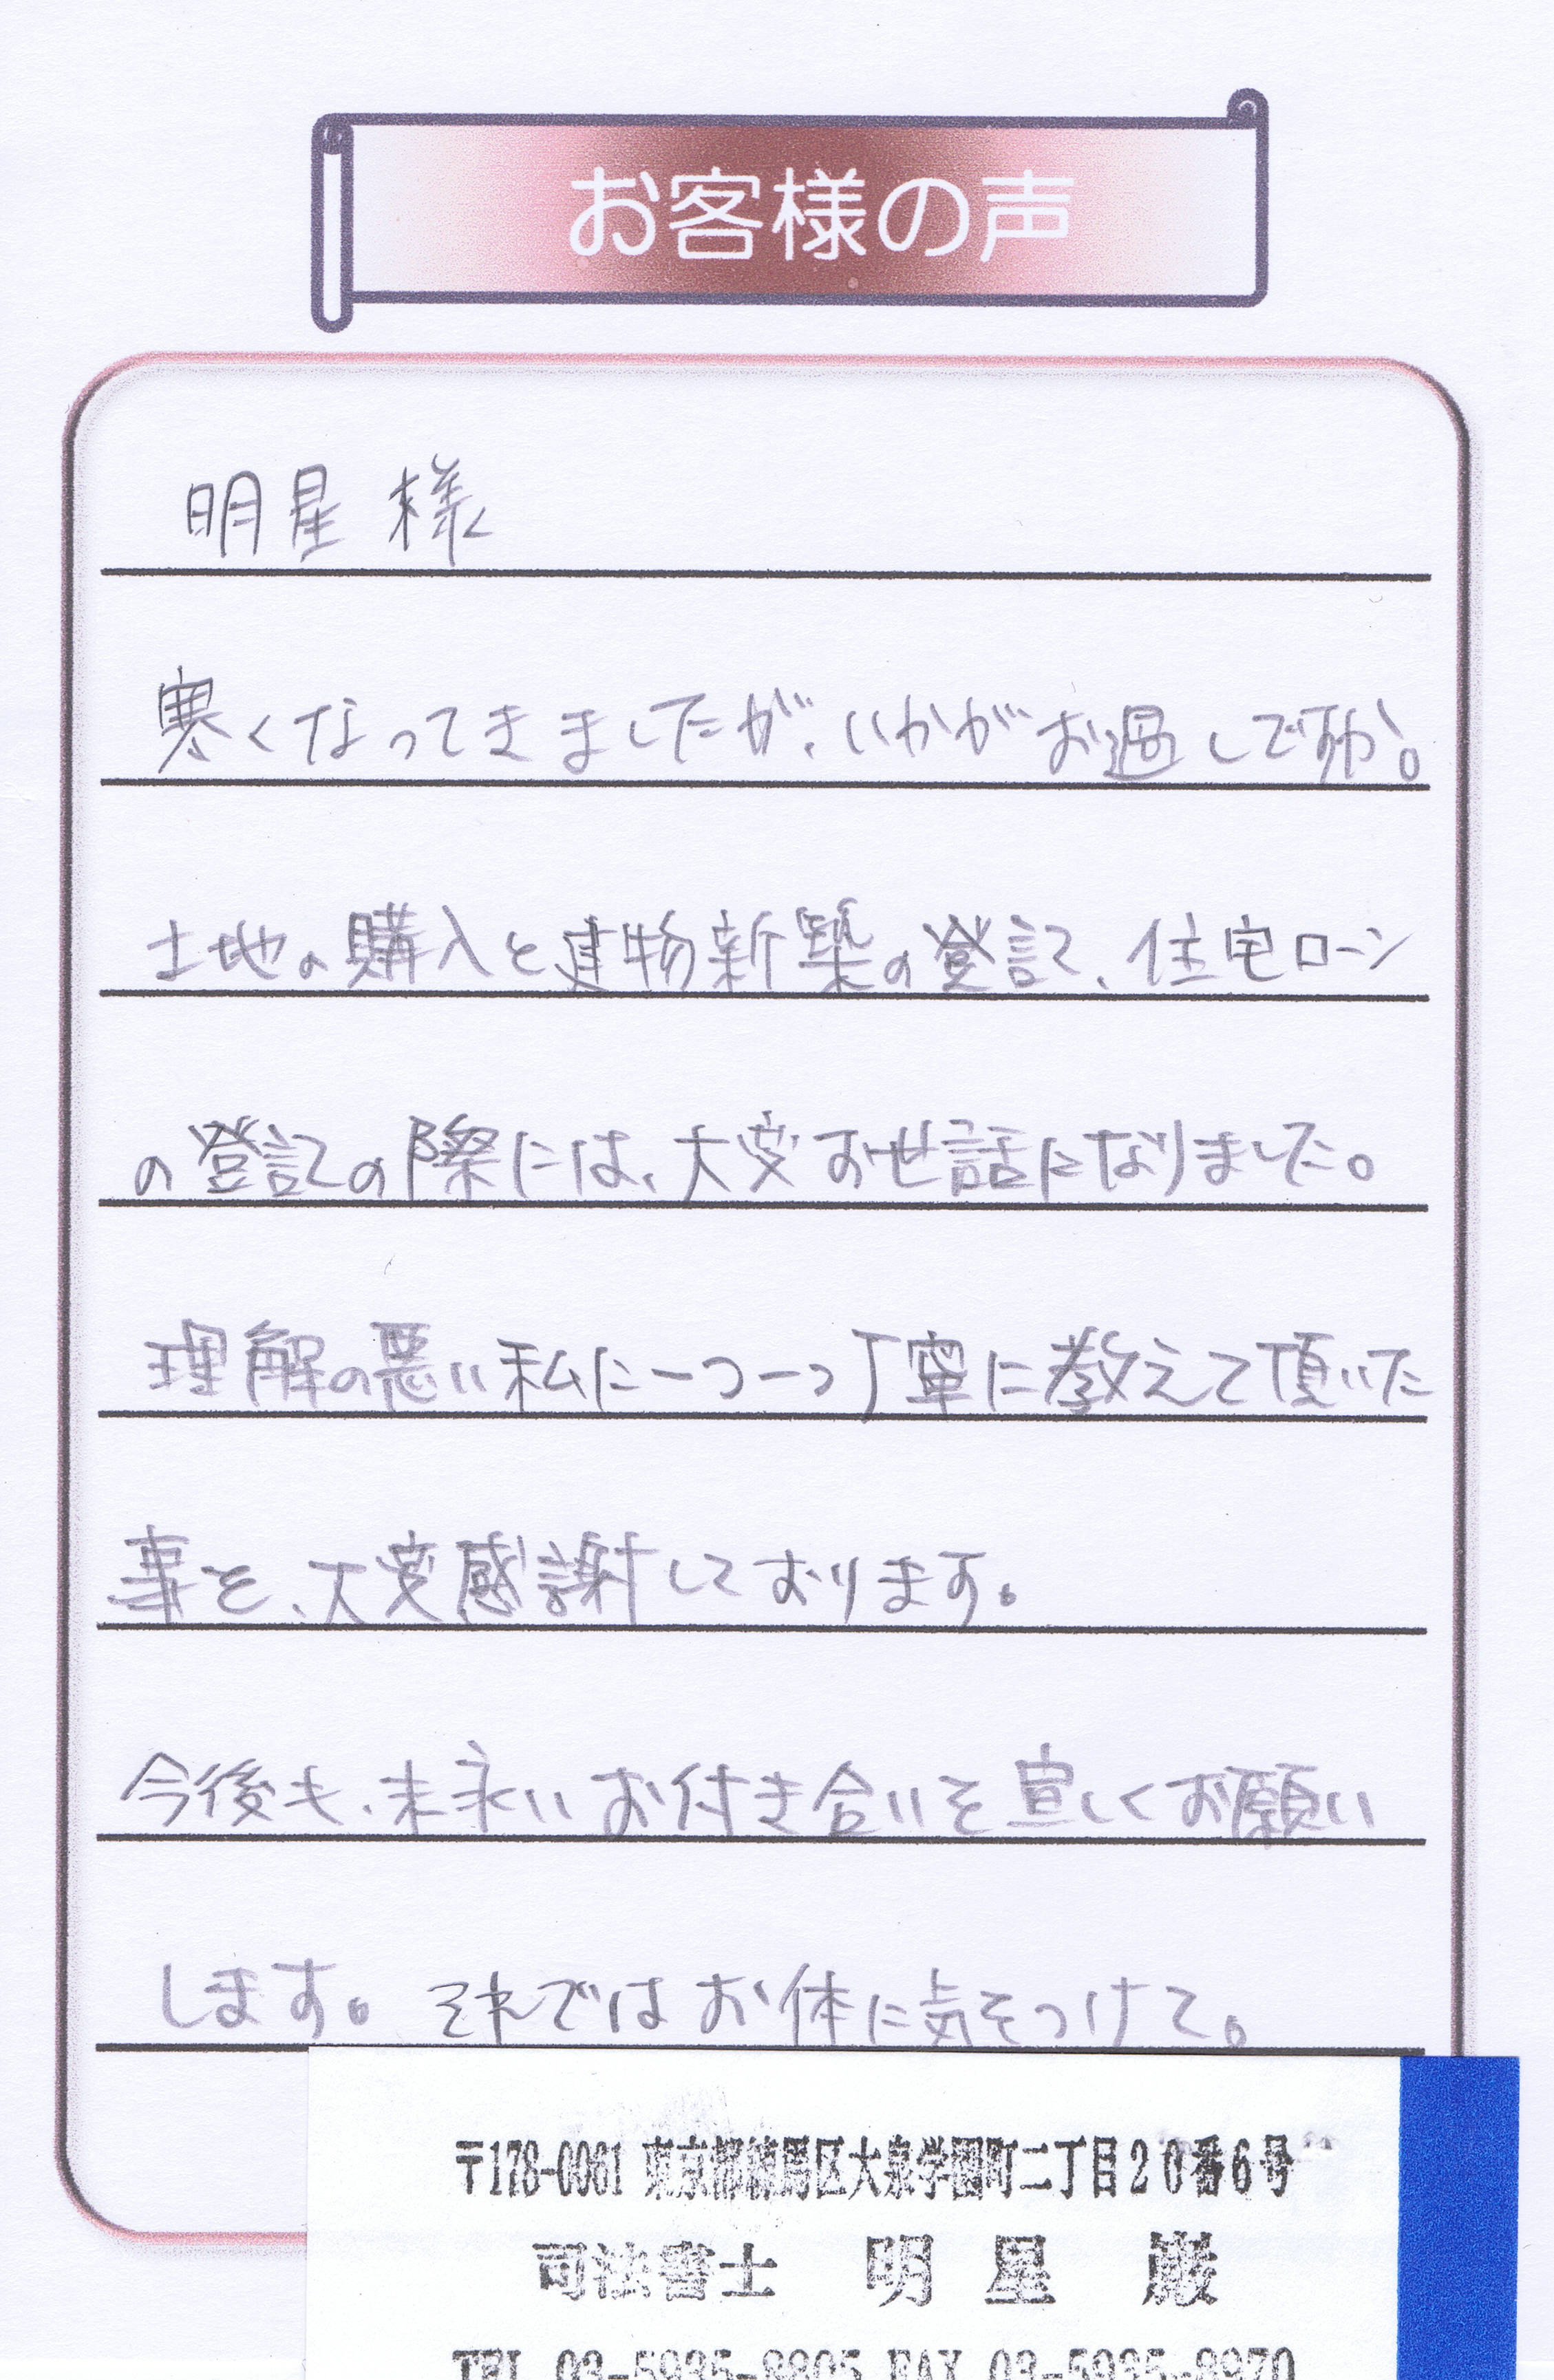 お客様の声
明星 様
寒くなってきましたが、いかがお過しですか。
土地の購入と建物新築の登記、住宅ローン
の登記の際には、大変お世話になりました。
理解の悪い私に一つ一つ丁寧に教えて頂いた
事を、大変感謝しております。
今後も、末永いお付き合いを宜しくお願い
します。それではお体に気をつけて。
〒178-0061 東京都練馬区大泉学園町二丁目20番6号
司法書士 明 星 巌
TEL 03-5935-8805 FAX 03-5935-8970